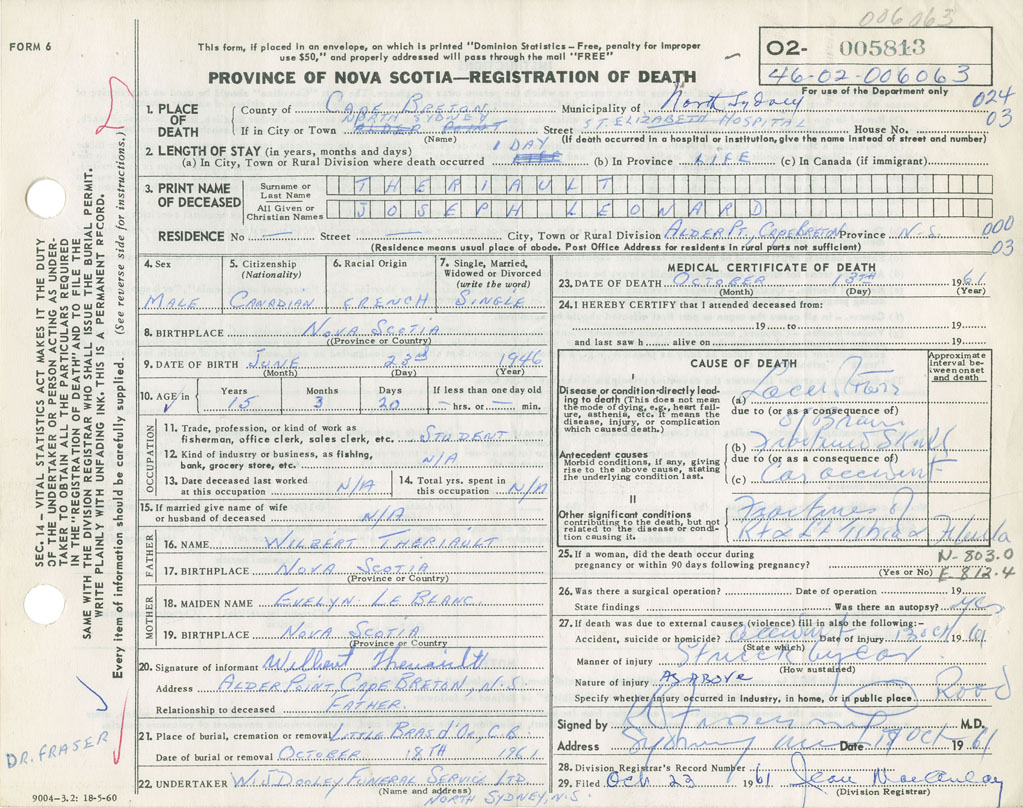 006063
FORM 6
This form, if placed in an envelope, on which is printed "Dominion Statistics—Free, penalty for improper
use $50," and properly addressed will pass through the mail "FREE"
02- 005813
46-02-006063
For use of the Department only
PROVINCE OF NOVA SCOTIA—REGISTRATION OF DEATH
024
03
1. PLACE OF DEATH
County of CAPE BRETON Municipality of North Sydney
NORTH SYDNEY ST. ELIZABETH HOSPITAL
If in City or Town ALDER POINT Street House No.
(Name) (If death occurred in a hospital or institution, give the name instead of street and number)
2. LENGTH OF STAY (in years, months and days) 1 DAY
(a) In City, Town or Rural Division where death occurred (b) In Province LIFE (c) In Canada (if immigrant)
3. PRINT NAME OF DECEASED
Surname or Last Name THERIAULT
All Given or Christian Names JOSEPH LEONARD
RESIDENCE No — Street — City, Town or Rural Division ALDER PT. CAPE BRETON Province N.S. 000
(Residence means usual place of abode. Post Office Address for residents in rural parts not sufficient) 03
4. Sex MALE
5. Citizenship (Nationality) CANADIAN
6. Racial Origin FRENCH
7. Single, Married, Widowed or Divorced (write the word) SINGLE
8. BIRTHPLACE NOVA SCOTIA
(Province or Country)
9. DATE OF BIRTH JUNE 23rd 1946
(Month) (Day) (Year)
10. AGE in Years 15 Months 3 Days 20 If less than one day old — hrs. or — min.
OCCUPATION
11. Trade, profession, or kind of work as
fisherman, office clerk, sales clerk, etc. STUDENT
12. Kind of industry or business, as fishing,
bank, grocery store, etc. N/A
13. Date deceased last worked
at this occupation N/A
14. Total yrs. spent in
this occupation N/A
15. If married give name of wife
or husband of deceased N/A
FATHER
16. NAME WILBERT THERIAULT
17. BIRTHPLACE NOVA SCOTIA
(Province or Country)
MOTHER
18. MAIDEN NAME EVELYN LE BLANC
19. BIRTHPLACE NOVA SCOTIA
(Province or Country)
20. Signature of informant Wilbert Theriault
Address ALDER POINT CAPE BRETON, N.S.
Relationship to deceased FATHER
21. Place of burial, cremation or removal LITTLE BRAS d'OR, C.B.
Date of burial or removal OCTOBER 18TH 1961
22. UNDERTAKER W.J. DOOLEY FUNERAL SERVICE LTD
(Name and address)
NORTH SYDNEY, N.S.
MEDICAL CERTIFICATE OF DEATH
23. DATE OF DEATH OCTOBER 13TH 1961
(Month) (Day) (Year)
24. I HEREBY CERTIFY that I attended deceased from:
19 to 19
and last saw h alive on 19
CAUSE OF DEATH
Approximate interval between onset and death
I
Disease or condition directly leading to death (This does not mean the mode of dying, e.g., heart failure, asthenia, etc. It means the disease, injury, or complication which caused death.)
(a) Laceration
due to (or as a consequence of)
of brain
Antecedent causes
Morbid conditions, if any, giving rise to the above cause, stating the underlying condition last.
(b) Fractured Skull
due to (or as a consequence of)
(c) Car accident
II
Other significant conditions
contributing to the death, but not related to the disease or condition causing it.
Fractures of
Rt & Lt Tibia & Fibula
25. If a woman, did the death occur during
pregnancy or within 90 days following pregnancy?
(Yes or No)
N-803.0
E-812.4
26. Was there a surgical operation? Date of operation 19
State findings Was there an autopsy? yes
27. If death was due to external causes (violence) fill in also the following:—
Accident, suicide or homicide? Accident Date of injury 13 Oct 1961
(State which)
Manner of injury Struck by car
(How sustained)
Nature of injury AS ABOVE
Specify whether injury occurred in industry, in home, or in public place Road
Signed by M.D.
Address Sydney Mines Date 19 Oct 1961
28. Division Registrar's Record Number
29. Filed Oct 23 1961 Jean
(Division Registrar)
SEC. 14—VITAL STATISTICS ACT MAKES IT THE DUTY
OF THE UNDERTAKER OR PERSON ACTING AS UNDERTAKER TO OBTAIN ALL THE PARTICULARS REQUIRED
IN THE "REGISTRATION OF DEATH" AND TO FILE THE
SAME WITH THE DIVISION REGISTRAR WHO SHALL ISSUE THE BURIAL PERMIT.
WRITE PLAINLY WITH UNFADING INK. THIS IS A PERMANENT RECORD.
Every item of information should be carefully supplied. (See reverse side for instructions.)
DR. FRASER
9004-3.2: 18-5-60